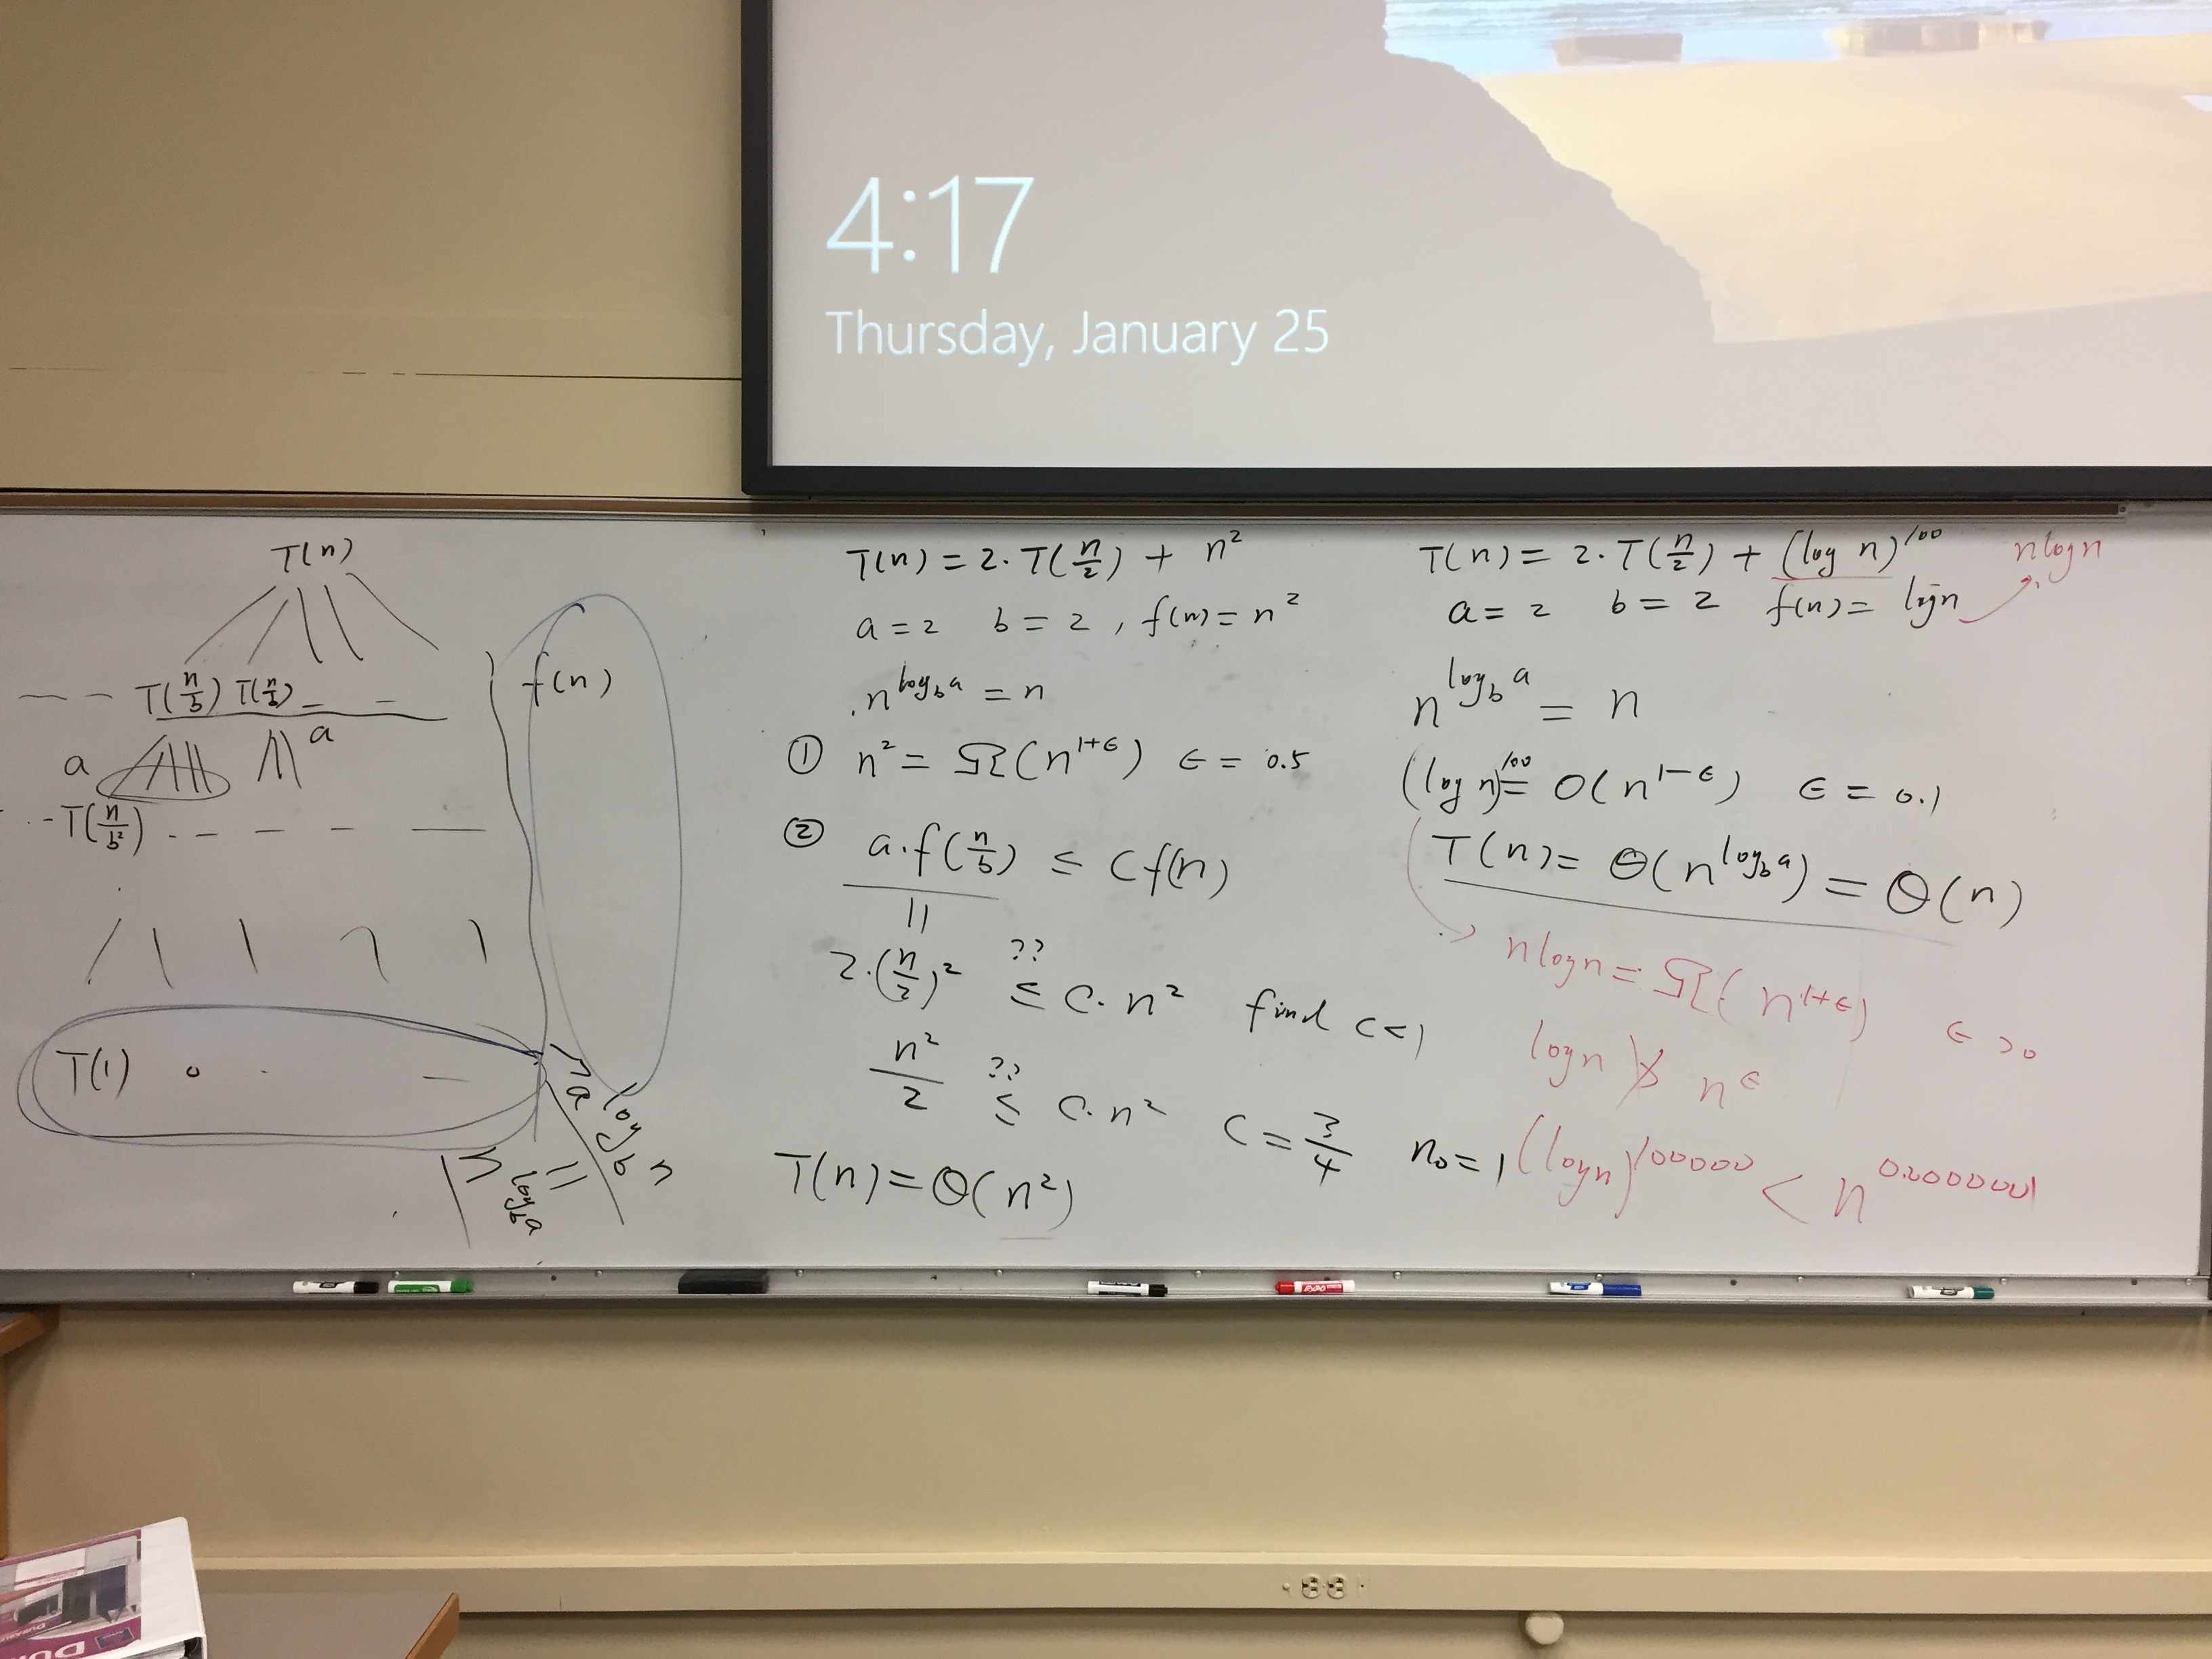 4:17
Thursday, January 25
T(n)
T(n/b) T(n/b) _ _
f(n)
a
a
T(n/b²)
T(1)
a^(log_b n)
=
n^(log_b a)
T(n) = 2·T(n/2) + n²
a = 2 b = 2, f(n) = n²
n^(log_b a) = n
① n² = Ω(n^(1+ϵ)) ϵ = 0.5
② a·f(n/b) ≤ Cf(n)
||
2·(n/2)² ≤ C·n² find c<1
??
n²/2 ≤ C·n² C = 3/4 n₀ = 1
??
T(n) = Θ(n²)
T(n) = 2·T(n/2) + (log n)^100
nlogn
a = 2 b = 2 f(n) = logn
n^(log_b a) = n
(log n)^100 = O(n^(1-ϵ)) ϵ = 0.1
T(n) = Θ(n^(log_b a)) = Θ(n)
nlogn = Ω(n^(1+ϵ)) ϵ >0
logn ≯ n^ϵ
(logn)^100000 < n^0.0000001